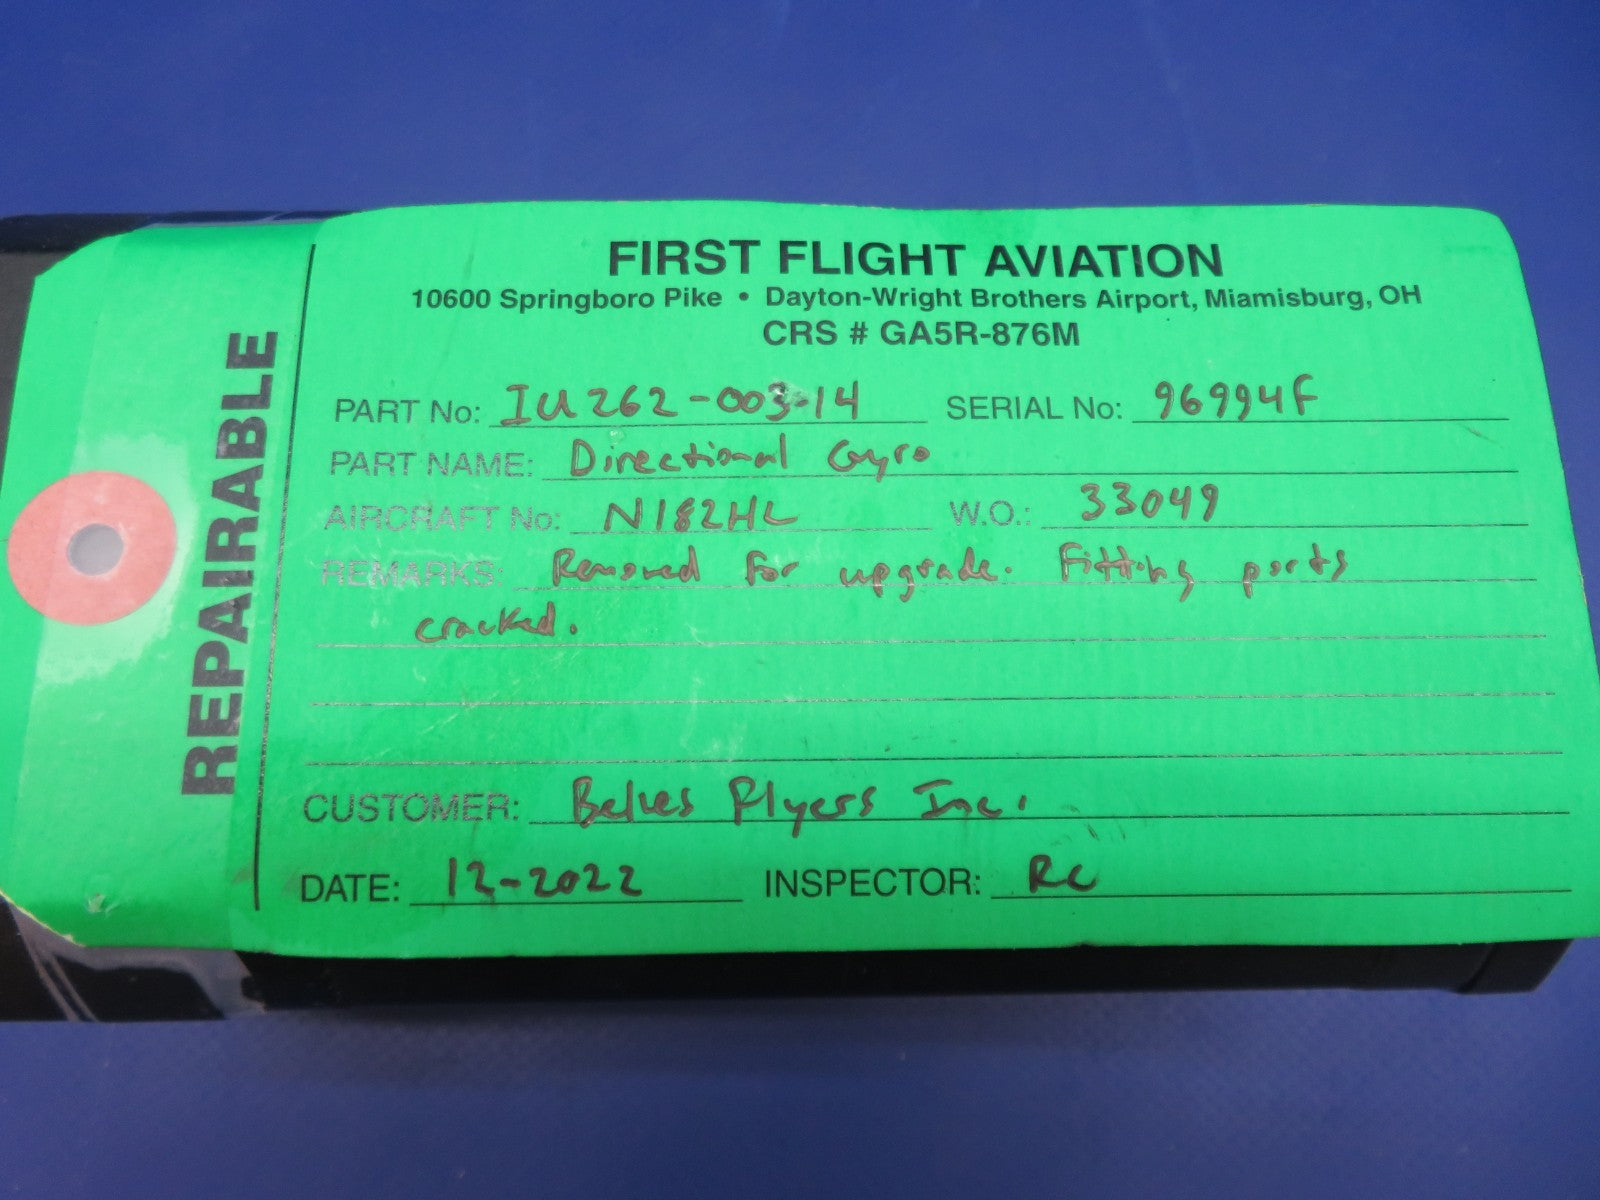 FIRST FLIGHT AVIATION
10600 Springboro Pike • Dayton-Wright Brothers Airport, Miamisburg, OH
CRS # GA5R-876M
REPAIRABLE
PART No: IU262-003-14 SERIAL No: 96994F
PART NAME: Directional Gyro
AIRCRAFT No: N182HL W.O.: 33049
REMARKS: Removed for upgrade. Fitting ports
cracked.
CUSTOMER: Flyers Inc.
DATE: 12-2022 INSPECTOR: RC